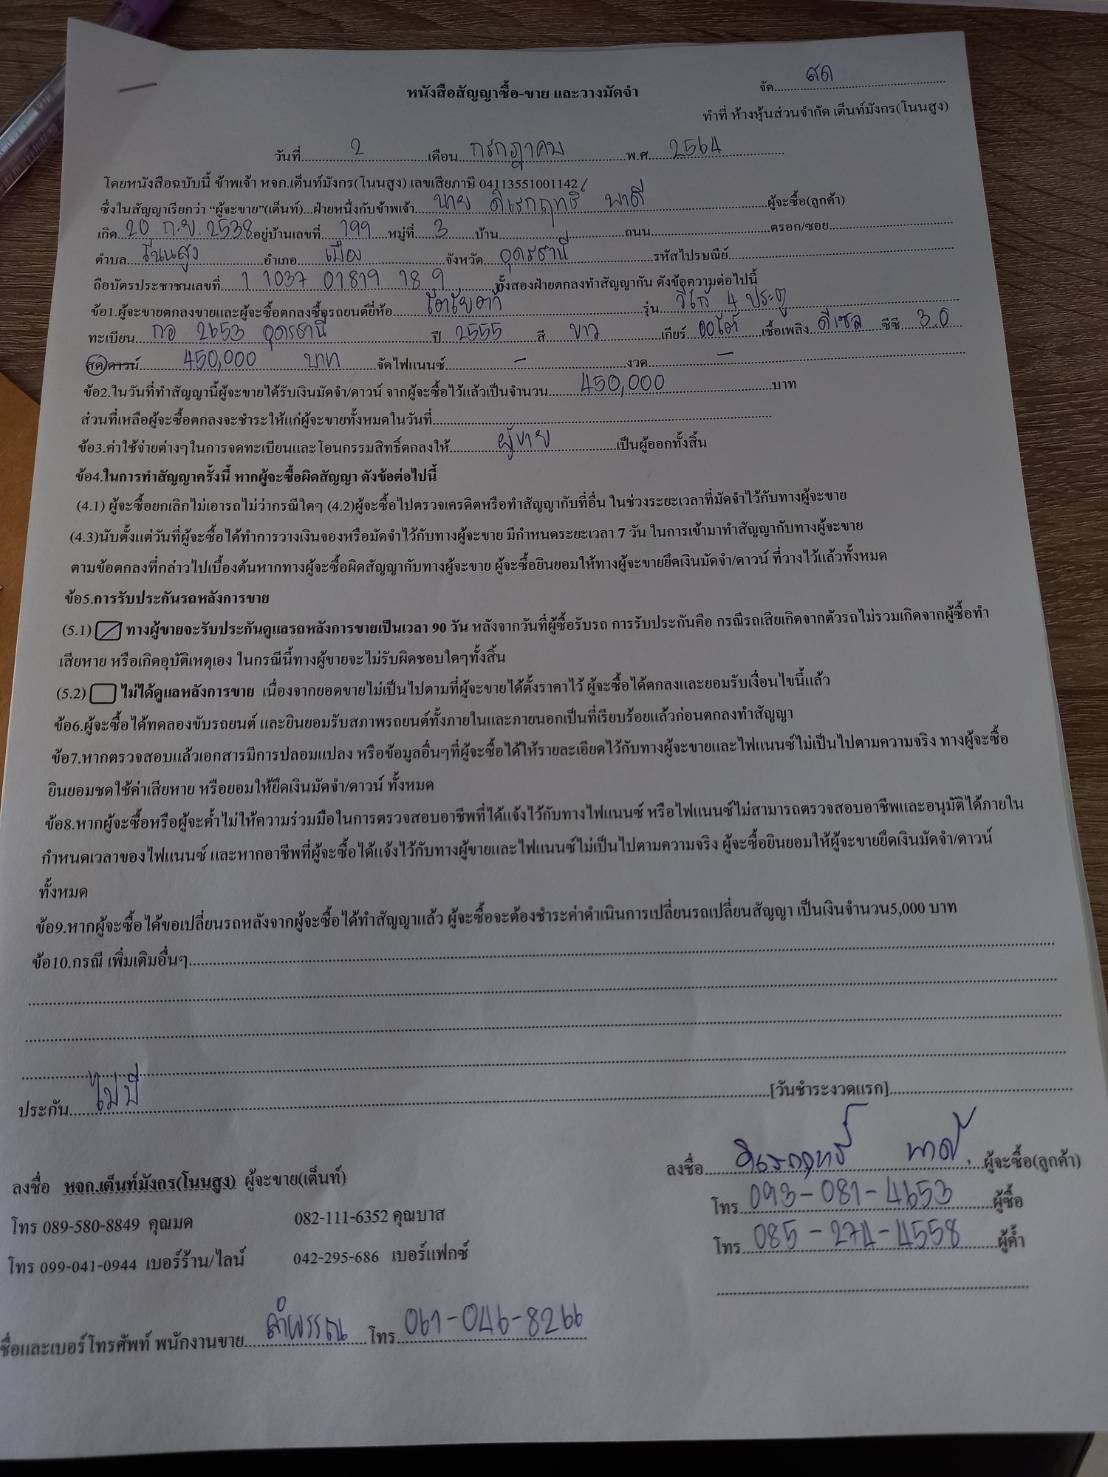 หนังสือสัญญาซื้อ-ขาย และวางมัดจำ
จัด สด
ทำที่ ห้างหุ้นส่วนจำกัด เต็นท์มังกร(โนนสูง)
วันที่ 2 เดือน กรกฎาคม พ.ศ. 2564
โดยหนังสือฉบับนี้ ข้าพเจ้า หจก.เต็นท์มังกร(โนนสูง) เลขเสียภาษี 04113551001142
ซึ่งในสัญญาเรียกว่า "ผู้จะขาย"(เต็นท์)...ฝ่ายหนึ่งกับข้าพเจ้า นาย ดิเรกฤทธิ์ พาดี ผู้จะซื้อ(ลูกค้า)
เกิด 20 ก.ย. 2538 อยู่บ้านเลขที่ 199 หมู่ที่ 3 บ้าน ถนน ตรอก/ซอย
ตำบล โนนสูง อำเภอ เมือง จังหวัด อุดรธานี รหัสไปรษณีย์
ถือบัตรประชาชนเลขที่ 1 1037 01819 18 9 ทั้งสองฝ่ายตกลงทำสัญญากัน ดังข้อความต่อไปนี้
ข้อ1.ผู้จะขายตกลงขายและผู้จะซื้อตกลงซื้อรถยนต์ยี่ห้อ โตโยต้า รุ่น วีโก้ 4 ประตู
ทะเบียน กอ 2653 อุดรธานี ปี 2555 สี ขาว เกียร์ ออโต้ เชื้อเพลิง ดีเซล ซีซี 3.0
สด/ดาวน์ 450,000 บาท จัดไฟแนนซ์ - งวด -
ข้อ2.ในวันที่ทำสัญญานี้ผู้จะขายได้รับเงินมัดจำ/ดาวน์ จากผู้จะซื้อไว้แล้วเป็นจำนวน 450,000 บาท
ส่วนที่เหลือผู้จะซื้อตกลงจะชำระให้แก่ผู้จะขายทั้งหมดในวันที่
ข้อ3.ค่าใช้จ่ายต่างๆในการจดทะเบียนและโอนกรรมสิทธิ์ตกลงให้ ผู้ขาย เป็นผู้ออกทั้งสิ้น
ข้อ4.ในการทำสัญญาครั้งนี้ หากผู้จะซื้อผิดสัญญา ดังข้อต่อไปนี้
(4.1) ผู้จะซื้อยกเลิกไม่เอารถไม่ว่ากรณีใดๆ (4.2)ผู้จะซื้อไปตรวจเครดิตหรือทำสัญญากับที่อื่น ในช่วงระยะเวลาที่มัดจำไว้กับทางผู้จะขาย
(4.3)นับตั้งแต่วันที่ผู้จะซื้อได้ทำการวางเงินจองหรือมัดจำไว้กับทางผู้จะขาย มีกำหนดระยะเวลา 7 วัน ในการเข้ามาทำสัญญากับทางผู้จะขาย
ตามข้อตกลงที่กล่าวไปเบื้องต้นหากทางผู้จะซื้อผิดสัญญากับทางผู้จะขาย ผู้จะซื้อยินยอมให้ทางผู้จะขายยึดเงินมัดจำ/ดาวน์ ที่วางไว้แล้วทั้งหมด
ข้อ5.การรับประกันรถหลังการขาย
(5.1) ทางผู้ขายจะรับประกันดูแลรถหลังการขายเป็นเวลา 90 วัน หลังจากวันที่ผู้ซื้อรับรถ การรับประกันคือ กรณีรถเสียเกิดจากตัวรถไม่รวมเกิดจากผู้ซื้อทำ
เสียหาย หรือเกิดอุบัติเหตุเอง ในกรณีนี้ทางผู้ขายจะไม่รับผิดชอบใดๆทั้งสิ้น
(5.2) ไม่ได้ดูแลหลังการขาย เนื่องจากยอดขายไม่เป็นไปตามที่ผู้จะขายได้ตั้งราคาไว้ ผู้จะซื้อได้ตกลงและยอมรับเงื่อนไขนี้แล้ว
ข้อ6.ผู้จะซื้อได้ทดลองขับรถยนต์ และยินยอมรับสภาพรถยนต์ทั้งภายในและภายนอกเป็นที่เรียบร้อยแล้วก่อนตกลงทำสัญญา
ข้อ7.หากตรวจสอบแล้วเอกสารมีการปลอมแปลง หรือข้อมูลอื่นๆที่ผู้จะซื้อได้ให้รายละเอียดไว้กับทางผู้จะขายและไฟแนนซ์ไม่เป็นไปตามความจริง ทางผู้จะซื้อ
ยินยอมชดใช้ค่าเสียหาย หรือยอมให้ยึดเงินมัดจำ/ดาวน์ ทั้งหมด
ข้อ8.หากผู้จะซื้อหรือผู้จะค้ำไม่ให้ความร่วมมือในการตรวจสอบอาชีพที่ได้แจ้งไว้กับทางไฟแนนซ์ หรือไฟแนนซ์ไม่สามารถตรวจสอบอาชีพและอนุมัติได้ภายใน
กำหนดเวลาของไฟแนนซ์ และหากอาชีพที่ผู้จะซื้อได้แจ้งไว้กับทางผู้ขายและไฟแนนซ์ไม่เป็นไปตามความจริง ผู้จะซื้อยินยอมให้ผู้จะขายยึดเงินมัดจำ/ดาวน์
ทั้งหมด
ข้อ9.หากผู้จะซื้อได้ขอเปลี่ยนรถหลังจากผู้จะซื้อได้ทำสัญญาแล้ว ผู้จะซื้อจะต้องชำระค่าดำเนินการเปลี่ยนรถเปลี่ยนสัญญา เป็นเงินจำนวน5,000 บาท
ข้อ10.กรณี เพิ่มเติมอื่นๆ
ประกัน ไม่มี [วันชำระงวดแรก]
ลงชื่อ หจก.เต็นท์มังกร(โนนสูง) ผู้จะขาย(เต็นท์) ลงชื่อ ดิเรกฤทธิ์ พาดี ผู้จะซื้อ(ลูกค้า)
โทร 089-580-8849 คุณมด 082-111-6352 คุณบาส โทร 093-081-4653 ผู้ซื้อ
โทร 099-041-0944 เบอร์ร้าน/ไลน์ 042-295-686 เบอร์แฟกซ์ โทร 085-274-4558 ผู้ค้ำ
ชื่อและเบอร์โทรศัพท์ พนักงานขาย ลำพรรณ โทร 061-046-8266